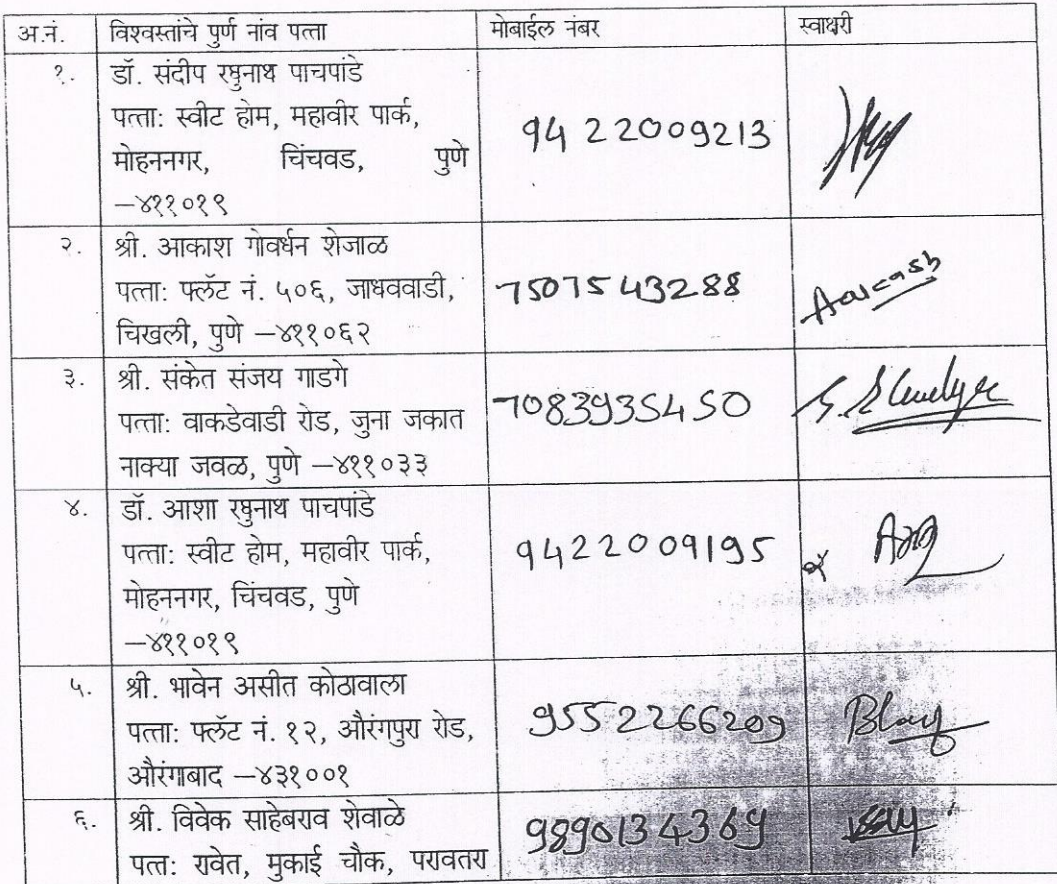 अ.नं. विश्वस्तांचे पुर्ण नांव पत्ता मोबाईल नंबर स्वाक्षरी
१. डॉ. संदीप रघुनाथ पाचपांडे
पत्ता: स्वीट होम, महावीर पार्क,
मोहननगर, चिंचवड, पुणे
–४११०१९
9422009213
२. श्री. आकाश गोवर्धन शेजाळ
पत्ता: फ्लॅट नं. ५०६, जाधववाडी,
चिखली, पुणे –४११०६२
7507543288
३. श्री. संकेत संजय गाडगे
पत्ता: वाकडेवाडी रोड, जुना जकात
नाक्या जवळ, पुणे –४११०३३
7083935450
४. डॉ. आशा रघुनाथ पाचपांडे
पत्ता: स्वीट होम, महावीर पार्क,
मोहननगर, चिंचवड, पुणे
–४११०१९
9422009195
५. श्री. भावेन असीत कोठावाला
पत्ता: फ्लॅट नं. १२, औरंगपुरा रोड,
औरंगाबाद –४३१००१
9552266209
६. श्री. विवेक साहेबराव शेवाळे
पत्त: रावेत, मुकाई चौक, परावतरा
9890134369